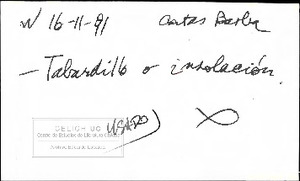 N 16-11-91 Cartas Barba
- Tabardillo o insolación.
CELICH UC
Centro de Estudios de Literatura Chilena
(USADO)